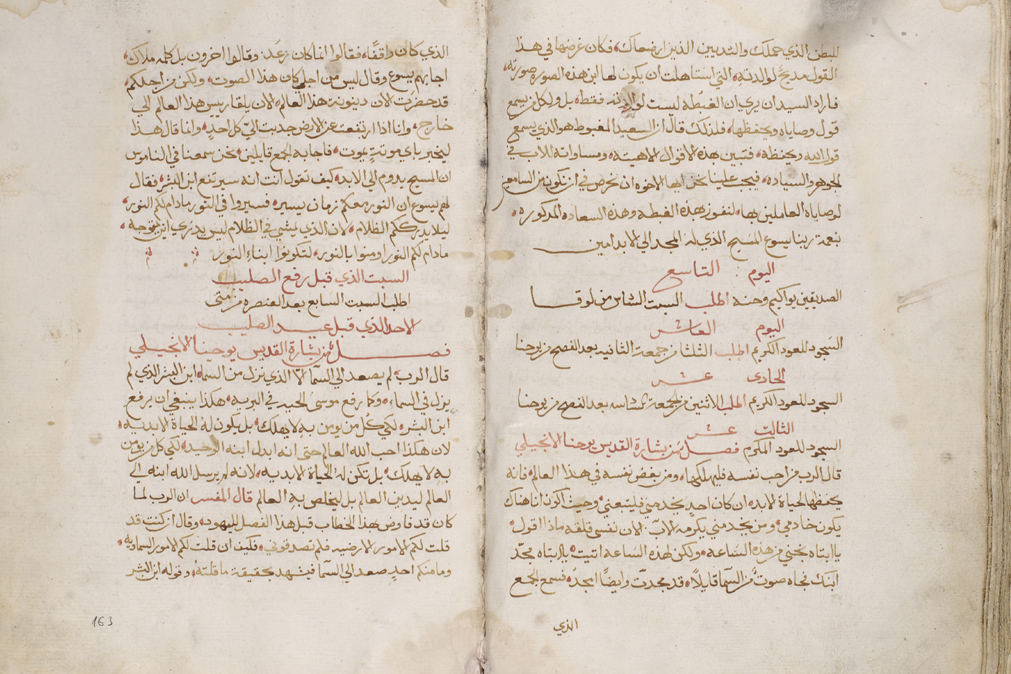 للبطن الذي حملك والثديين الذين ارضعاك فكان غرضها في هذا
القول مديح لوالدته التي استاهلت ان يكون لها ابن هذه الصوره صورته
فاراد السيد ان يرى ان الغبطه ليست لوالدته فقط بل ولكل من يسمع
قول وصاياه ويحفظها فلذلك قال ان السعيد المغبوط هو الذي يسمع
قول الله ويحفظه فتبين هذه الاقوال الاهيته ومساواته للاب في
الجوهر والسياده فيجب علينا نحن ايها الاخوه ان نحرص في ان نكون من السامعين
لوصاياه العاملين بها لنفوز بهذه الغبطه وهذه السعاده المذكوره
بنعمة ربنا يسوع المسيح الذي له المجد الى الابد امين
اليوم التاسع
الصديقين يواكيم وحنه اطلب السبت الثامن من لوقا
اليوم العاشر
السجود للعود الكريم اطلب الثلثا من جمعة الثانيه بعد الفصح من يوحنا
الحادي عشر
السجود للعود الكريم اطلب الاثنين من الجمعه السادسه بعد الفصح من يوحنا
الثالث عشر
السجود للعود المكرم فصل من بشارة القديس يوحنا الانجيلي
قال الرب من احب نفسه فليهلكها ومن بغض نفسه في هذا العالم فانه
يحفظها لحياة الابد ان كان احد يخدمني فليتبعني وحيث اكون انا هناك
يكون خادمي ومن يخدمني يكرمه الاب الان نفسي قلقه ماذا اقول
يا ابتاه نجني من هذه الساعه ولكن لهذه الساعه اتيت يا ابتاه مجد
ابنك فجاه صوت من السما قايلا قد مجدت وايضا امجد فسمع الجمع
الذي
الذي كان واقفا فقالوا انما كان رعد وقالوا اخرون بل كلمه ملاك
اجابهم يسوع وقال ليس من اجلي كان هذا الصوت ولكن من اجلكم
قد حضرت الان دينونة هذا العالم الان يلقا ريس هذا العالم الى
خارج وانا اذا ارتفعت عن الارض جدبت الي كل احد وانما قال هذا
ليخبر باي موتة يموت فاجابه الجمع قايلين نحن سمعنا في الناموس
ان المسيح يدوم الى الابد كيف تقول انت انه سيرتفع ابن البشر فقال
لهم يسوع ان النور معكم زمان يسير فسيروا في النور مادام لكم النور
ليلا يدرككم الظلام لان الذي يمشي في الظلام ليس يدري اين يتوجه
مادام لكم النور امنوا بالنور لتكونوا ابناء النور
السبت الذي قبل رفع الصليب
اطلب السبت السابع بعد العنصره من متى
الاحد الذي قبل عيد الصليب
فصل من بشارة القديس يوحنا الانجيلي
قال الرب لم يصعد الى السما الا الذي نزل من السما ابن البشر الذي لم
يزل في السماء وكما رفع موسى الحيه في البريه هكذا ينبغي ان يرفع
ابن البشر لكي كل من يومن به لا يهلك بل يكون له الحياة الابديه
لان هكذا احب الله العالم حتى انه ابدل ابنه الوحيد لكي كل من يومن
به لا يهلك بل تكن له الحياة الابديه لانه لم يرسل الله ابنه الى
العالم ليدين العالم بل ليخلص به العالم قال المفسر ان الرب لما
كان قد فاوض بهذا الخطاب قبل هذا الفصل لليهود وقال ان كنت قد
قلت لكم الامور الارضيه فلم تصدقوني فكيف ان قلت لكم الامور السماويه
وما منكم احد صعد الى السما فيشهد بحقيقة ما قلته وقوله ابن البشر
163